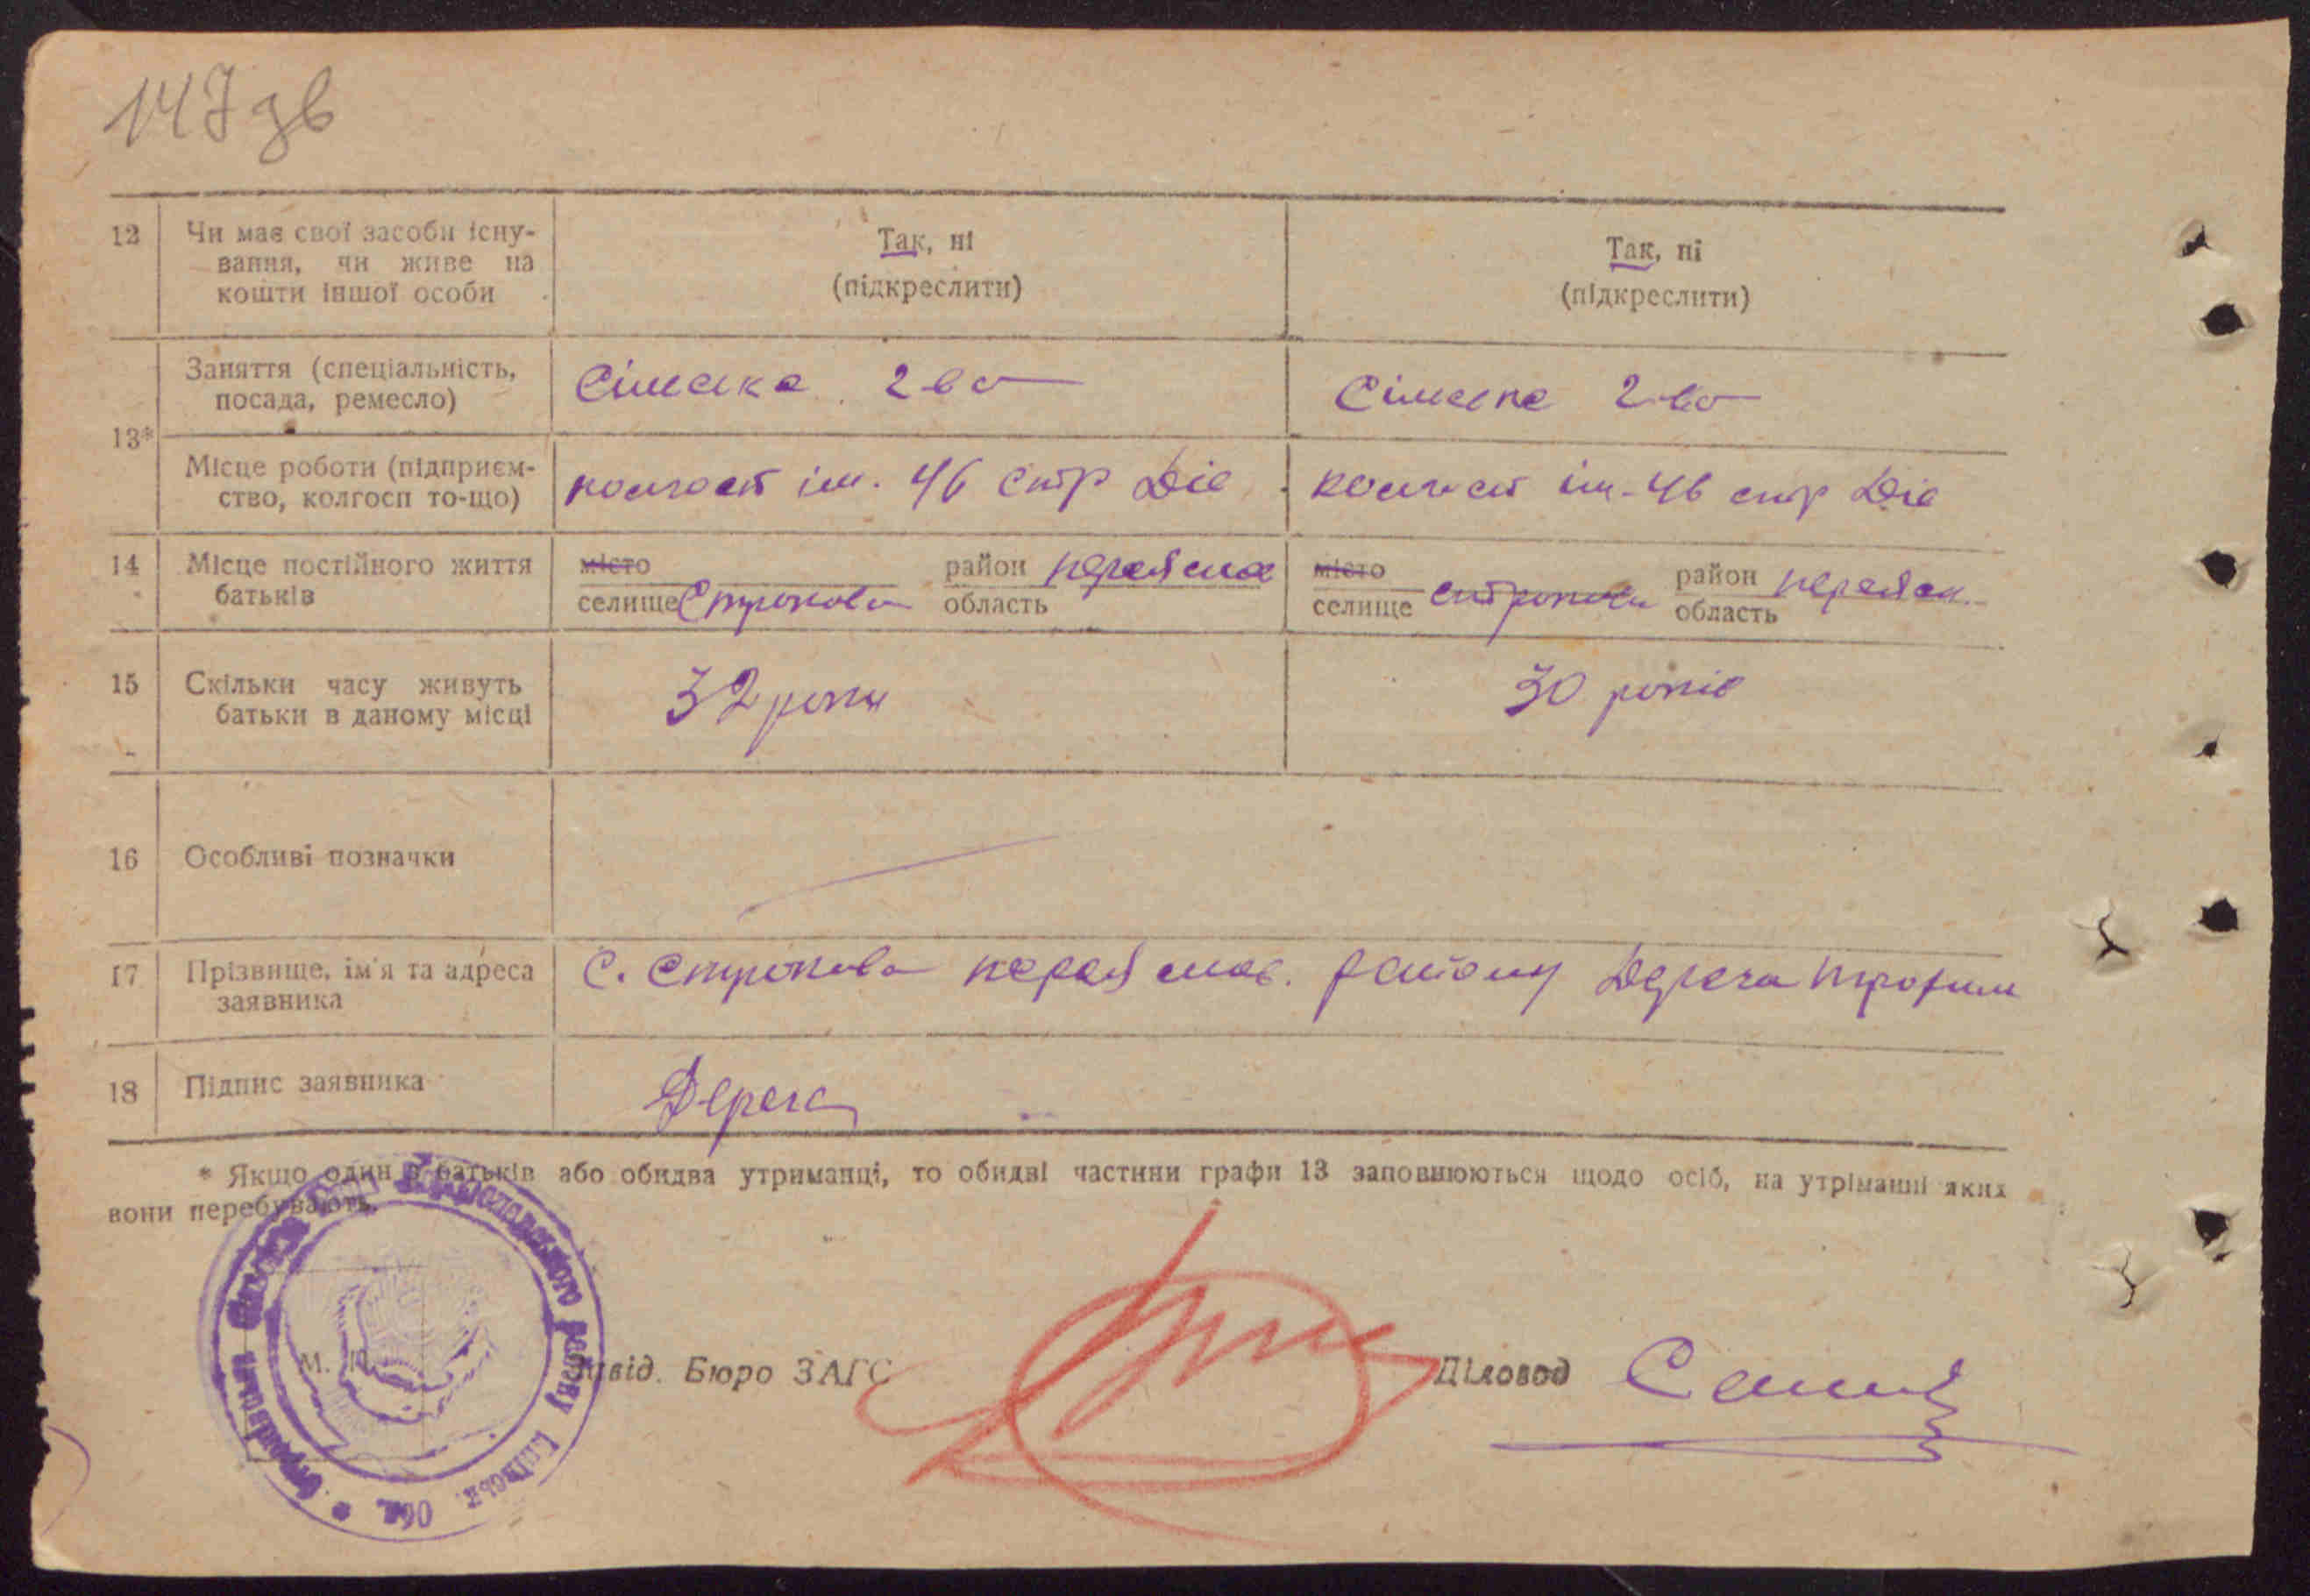 147 зв
12
Чи має свої засоби існу-
вання, чи живе на
кошти іншої особи
Так, ні
(підкреслити)
Так, ні
(підкреслити)
13*
Заняття (спеціальність,
посада, ремесло)
Сільске г-во
Сільске г-во
Місце роботи (підприєм-
ство, колгосп то-що)
колгосп ім. 46 стр Див
колгосп ім. 46 стр Див
14
Місце постійного життя
батьків
місто
селище Строкова
район Переяслав
область
місто
селище Строкова
район Переясл.
область
15
Скільки часу живуть
батьки в даному місці
32 роки
30 років
16
Особливі позначки
17
Прізвище, ім'я та адреса
заявника
С. Строкова Переяслав. району Дереча Трофим
18
Підпис заявника
Дереча
* Якщо один з батьків або обидва утриманці, то обидві частини графи 13 заповнюються щодо осіб, на утріманні яких
вони перебувають.
М. П.
Завід. Бюро ЗАГС
Діловод